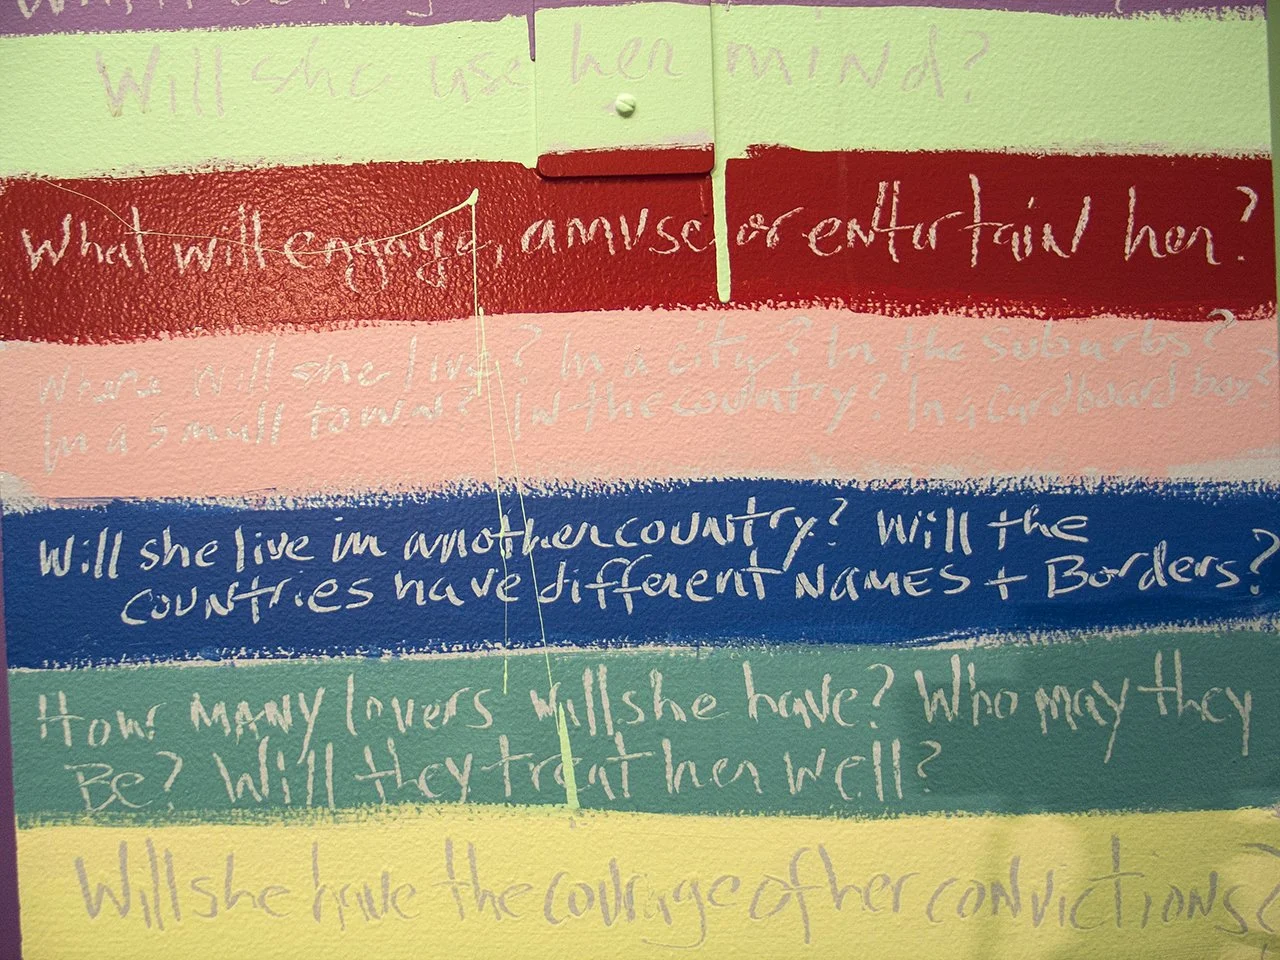 Will she use her mind?
What will engage, amuse or entertain her?
Where will she live? In a city? In the suburbs?
In a small town? In the country? In a cardboard box?
Will she live in another country? Will the
countries have different NAMES + Borders?
How MANY lovers will she have? Who may they
Be? Will they treat her well?
Will she have the courage of her convictions?